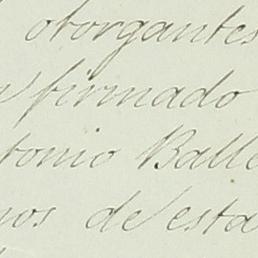 otorgantes
firmado
tonio Balle
nos de esta